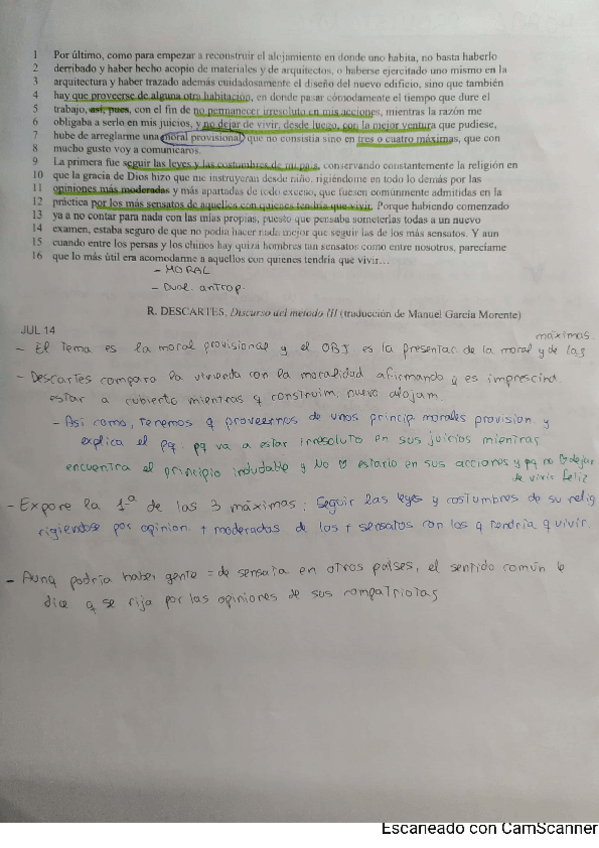 1 Por último, como para empezar a reconstruir el alojamiento en donde uno habita, no basta haberlo
2 derribado y haber hecho acopio de materiales y de arquitectos, o haberse ejercitado uno mismo en la
3 arquitectura y haber trazado además cuidadosamente el diseño del nuevo edificio, sino que también
4 hay que proveerse de alguna otra habitación, en donde pasar cómodamente el tiempo que dure el
5 trabajo, así, pues, con el fin de no permanecer irresoluto en mis acciones, mientras la razón me
6 obligaba a serlo en mis juicios, y no dejar de vivir, desde luego, con la mejor ventura que pudiese,
7 hube de arreglarme una moral provisional, que no consistía sino en tres o cuatro máximas, que con
8 mucho gusto voy a comunicaros.
9 La primera fue seguir las leyes y las costumbres de mi país, conservando constantemente la religión en
10 que la gracia de Dios hizo que me instruyeran desde niño, rigiéndome en todo lo demás por las
11 opiniones más moderadas y más apartadas de todo exceso, que fuesen comúnmente admitidas en la
12 práctica por los más sensatos de aquellos con quienes tendría que vivir. Porque habiendo comenzado
13 ya a no contar para nada con las mías propias, puesto que pensaba someterlas todas a un nuevo
14 examen, estaba seguro de que no podía hacer nada mejor que seguir las de los más sensatos. Y aun
15 cuando entre los persas y los chinos hay quizá hombres tan sensatos como entre nosotros, parecíame
16 que lo más útil era acomodarme a aquellos con quienes tendría que vivir…
- MORAL
- Dual. antrop.
R. DESCARTES, Discurso del método III (traducción de Manuel García Morente)
JUL 14
máximas.
- El tema es la moral provisional y el OBJ es la presentac. de la moral y de las
- Descartes compara la vivienda con la moralidad afirmando q es imprescind.
estar a cubierto mientras q construim. nuevo alojam.
- Así como, tenemos q proveernos de unos princip morales provision. y
explica el pq: pq va a estar irresoluto en sus juicios mientras
encuentra el principio indudable y No estarlo en sus acciones y pq no dejar
de vivir feliz
- Expone la 1.ª de las 3 máximas: Seguir las leyes y costumbres de su relig
rigiendose por opinion. + moderadas de los + sensatos con los q tendría q vivir.
- Aunq podría haber gente = de sensata en otros países, el sentido común le
dice q se rija por las opiniones de sus compatriotas
Escaneado con CamScanner